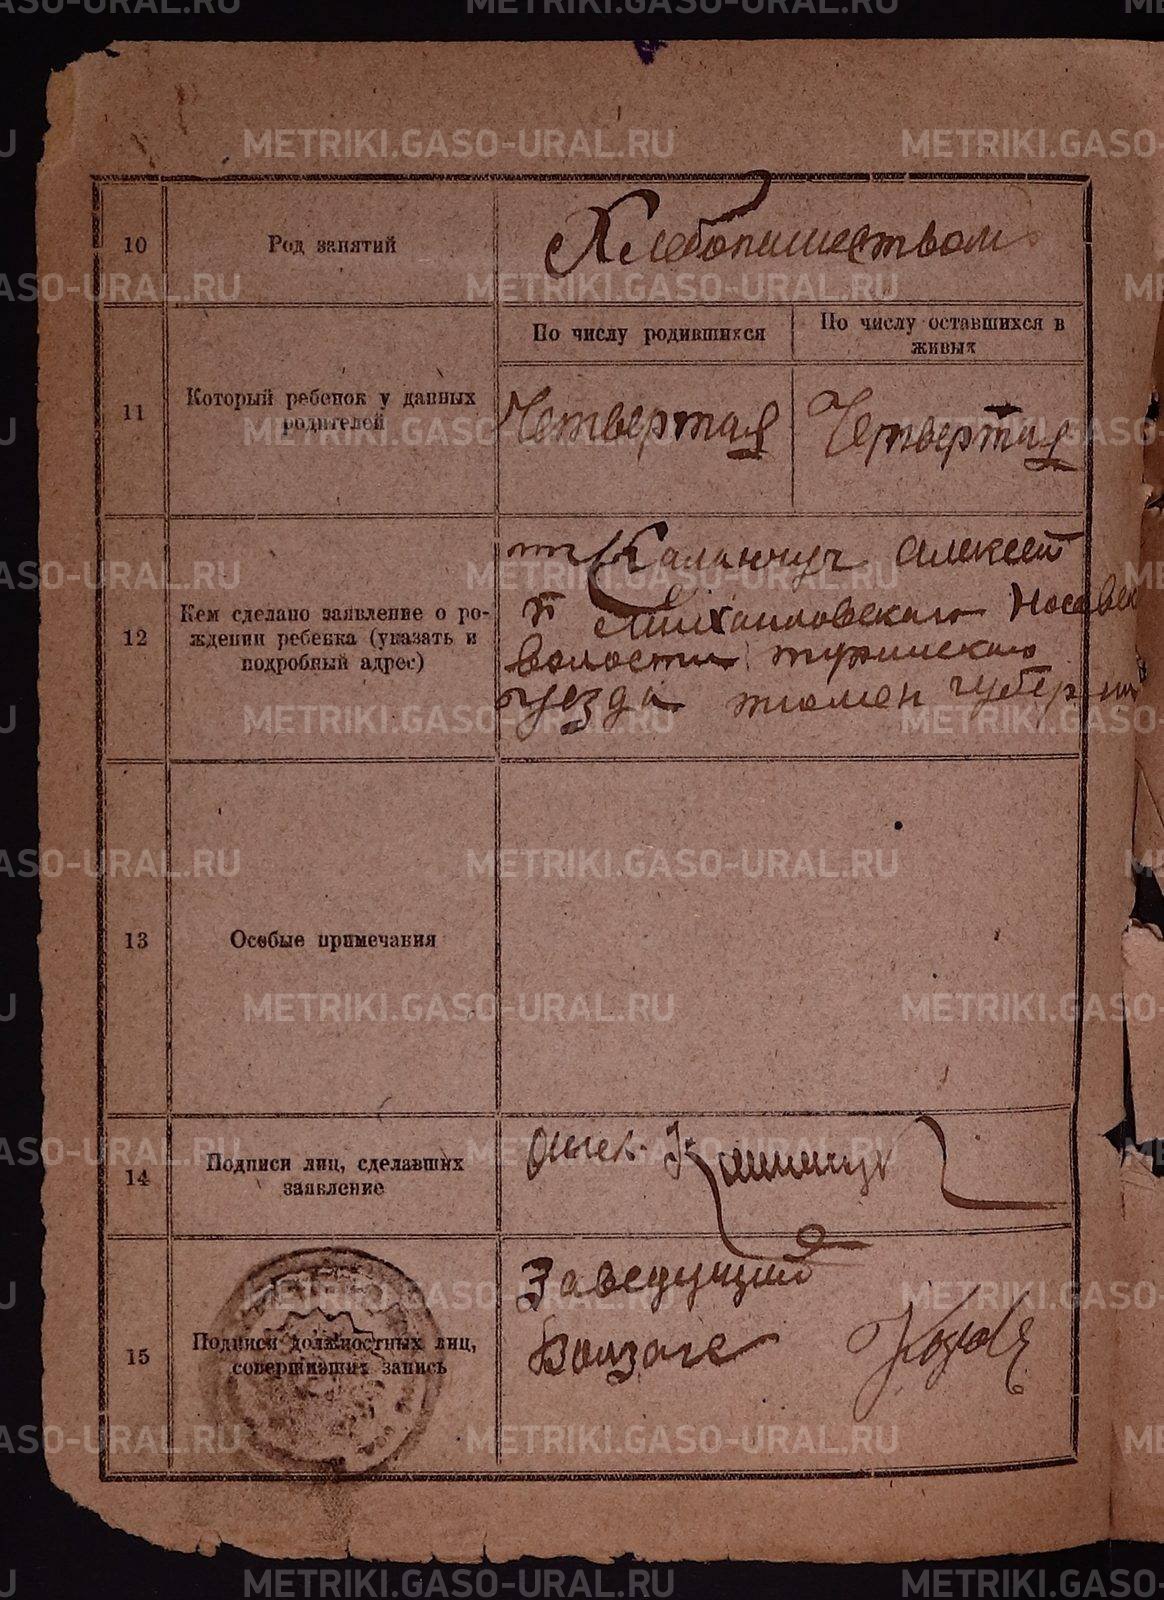 METRIKI.GASO-URAL.RU
10
Род занятий
Хлебопашеством
11
Который ребенок у данных
родителей
По числу родившихся
По числу оставшихся в
живых
Четвертая
Четвертая
12
Кем сделано заявление о ро-
ждении ребенка (указать и
подробный адрес)
Каланчук Алексей
п Михаиловскаго
волости туринскаго
уезда тюмен губернии
13
Особые примечания
14
Подписи лиц, сделавших
заявление
15
Подписи должностных лиц,
совершивших запись
Заведущий
Волзагс